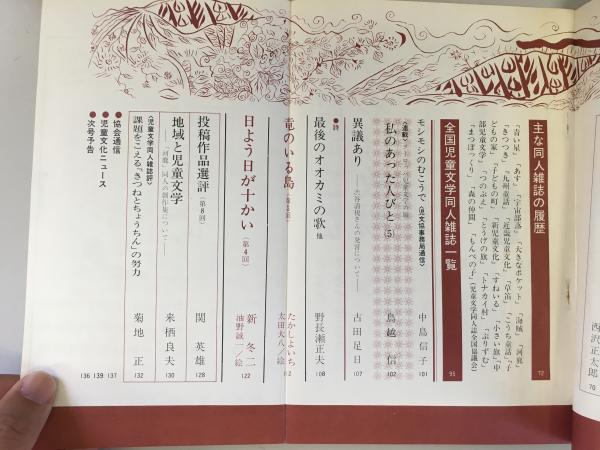 西沢正太郎
70
主な同人雑誌の履歴
72
「青い星」「あす」「宇宙部落」「大きなポケット」「海賊」「河鹿」
「きつつき」「九州童話」「近畿児童文化」「草笛」「こうち童話」「子
どもの家」「子どもの町」「新児童文化」「すねいる」「小さい旗」「中
部児童文学」「つのぶえ」「とうげの旗」「トナカイ村」「ぷりずむ」
「まつぼっくり」「森の仲間」「もんぺの子」(児童文学同人誌全国協議会)
全国児童文学同人雑誌一覧
95
モシモシのむこうで〈児文協事務局通信〉
中島信子
101
〈連載〉
私のあった人びと(5)
鳥越信
102
異議あり
——渋谷清視さんの発言について——
古田足日
107
●詩
最後のオオカミの歌 他
野長瀬正夫
108
竜のいる島
たかしよいち
太田大八/絵
112
日よう日が十かい(第4回)
新冬二
油野誠一/絵
122
投稿作品選評(第8回)
関英雄
128
地域と児童文学
——「河鹿」同人の創作集について——
来栖良夫
130
〈児童文学同人雑誌評〉
課題をこえる『きつねとちょうちん』の努力
菊地正
132
●協会通信
137
●児童文化ニュース
139
●次号予告
136